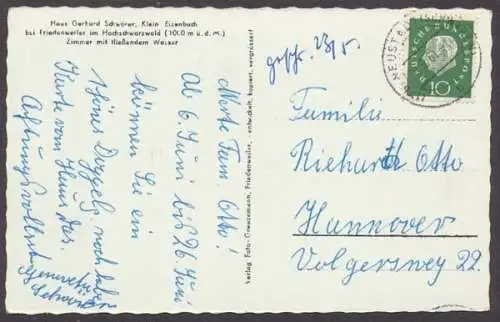 Haus Gerhard Schwörer, Klein Eisenbach
bei Friedenweiler im Hochschwarzwald (1010 m ü. d. M.)
Zimmer mit fließendem Wasser
Werte Fam. Otto!
Ab 6 Juni bis 26 Juni
können Sie ein
schönes Doppelz. noch haben
Karte vom Haus das.
Achtungsvollst
Verlag Foto-Grensemann, Friedenweiler, entwickelt, kopiert, vergrössert
23/5.
NEUSTADT
DEUTSCHE BUNDESPOST
10
Familie
Richard Otto
Hannover
Volgersweg 22.